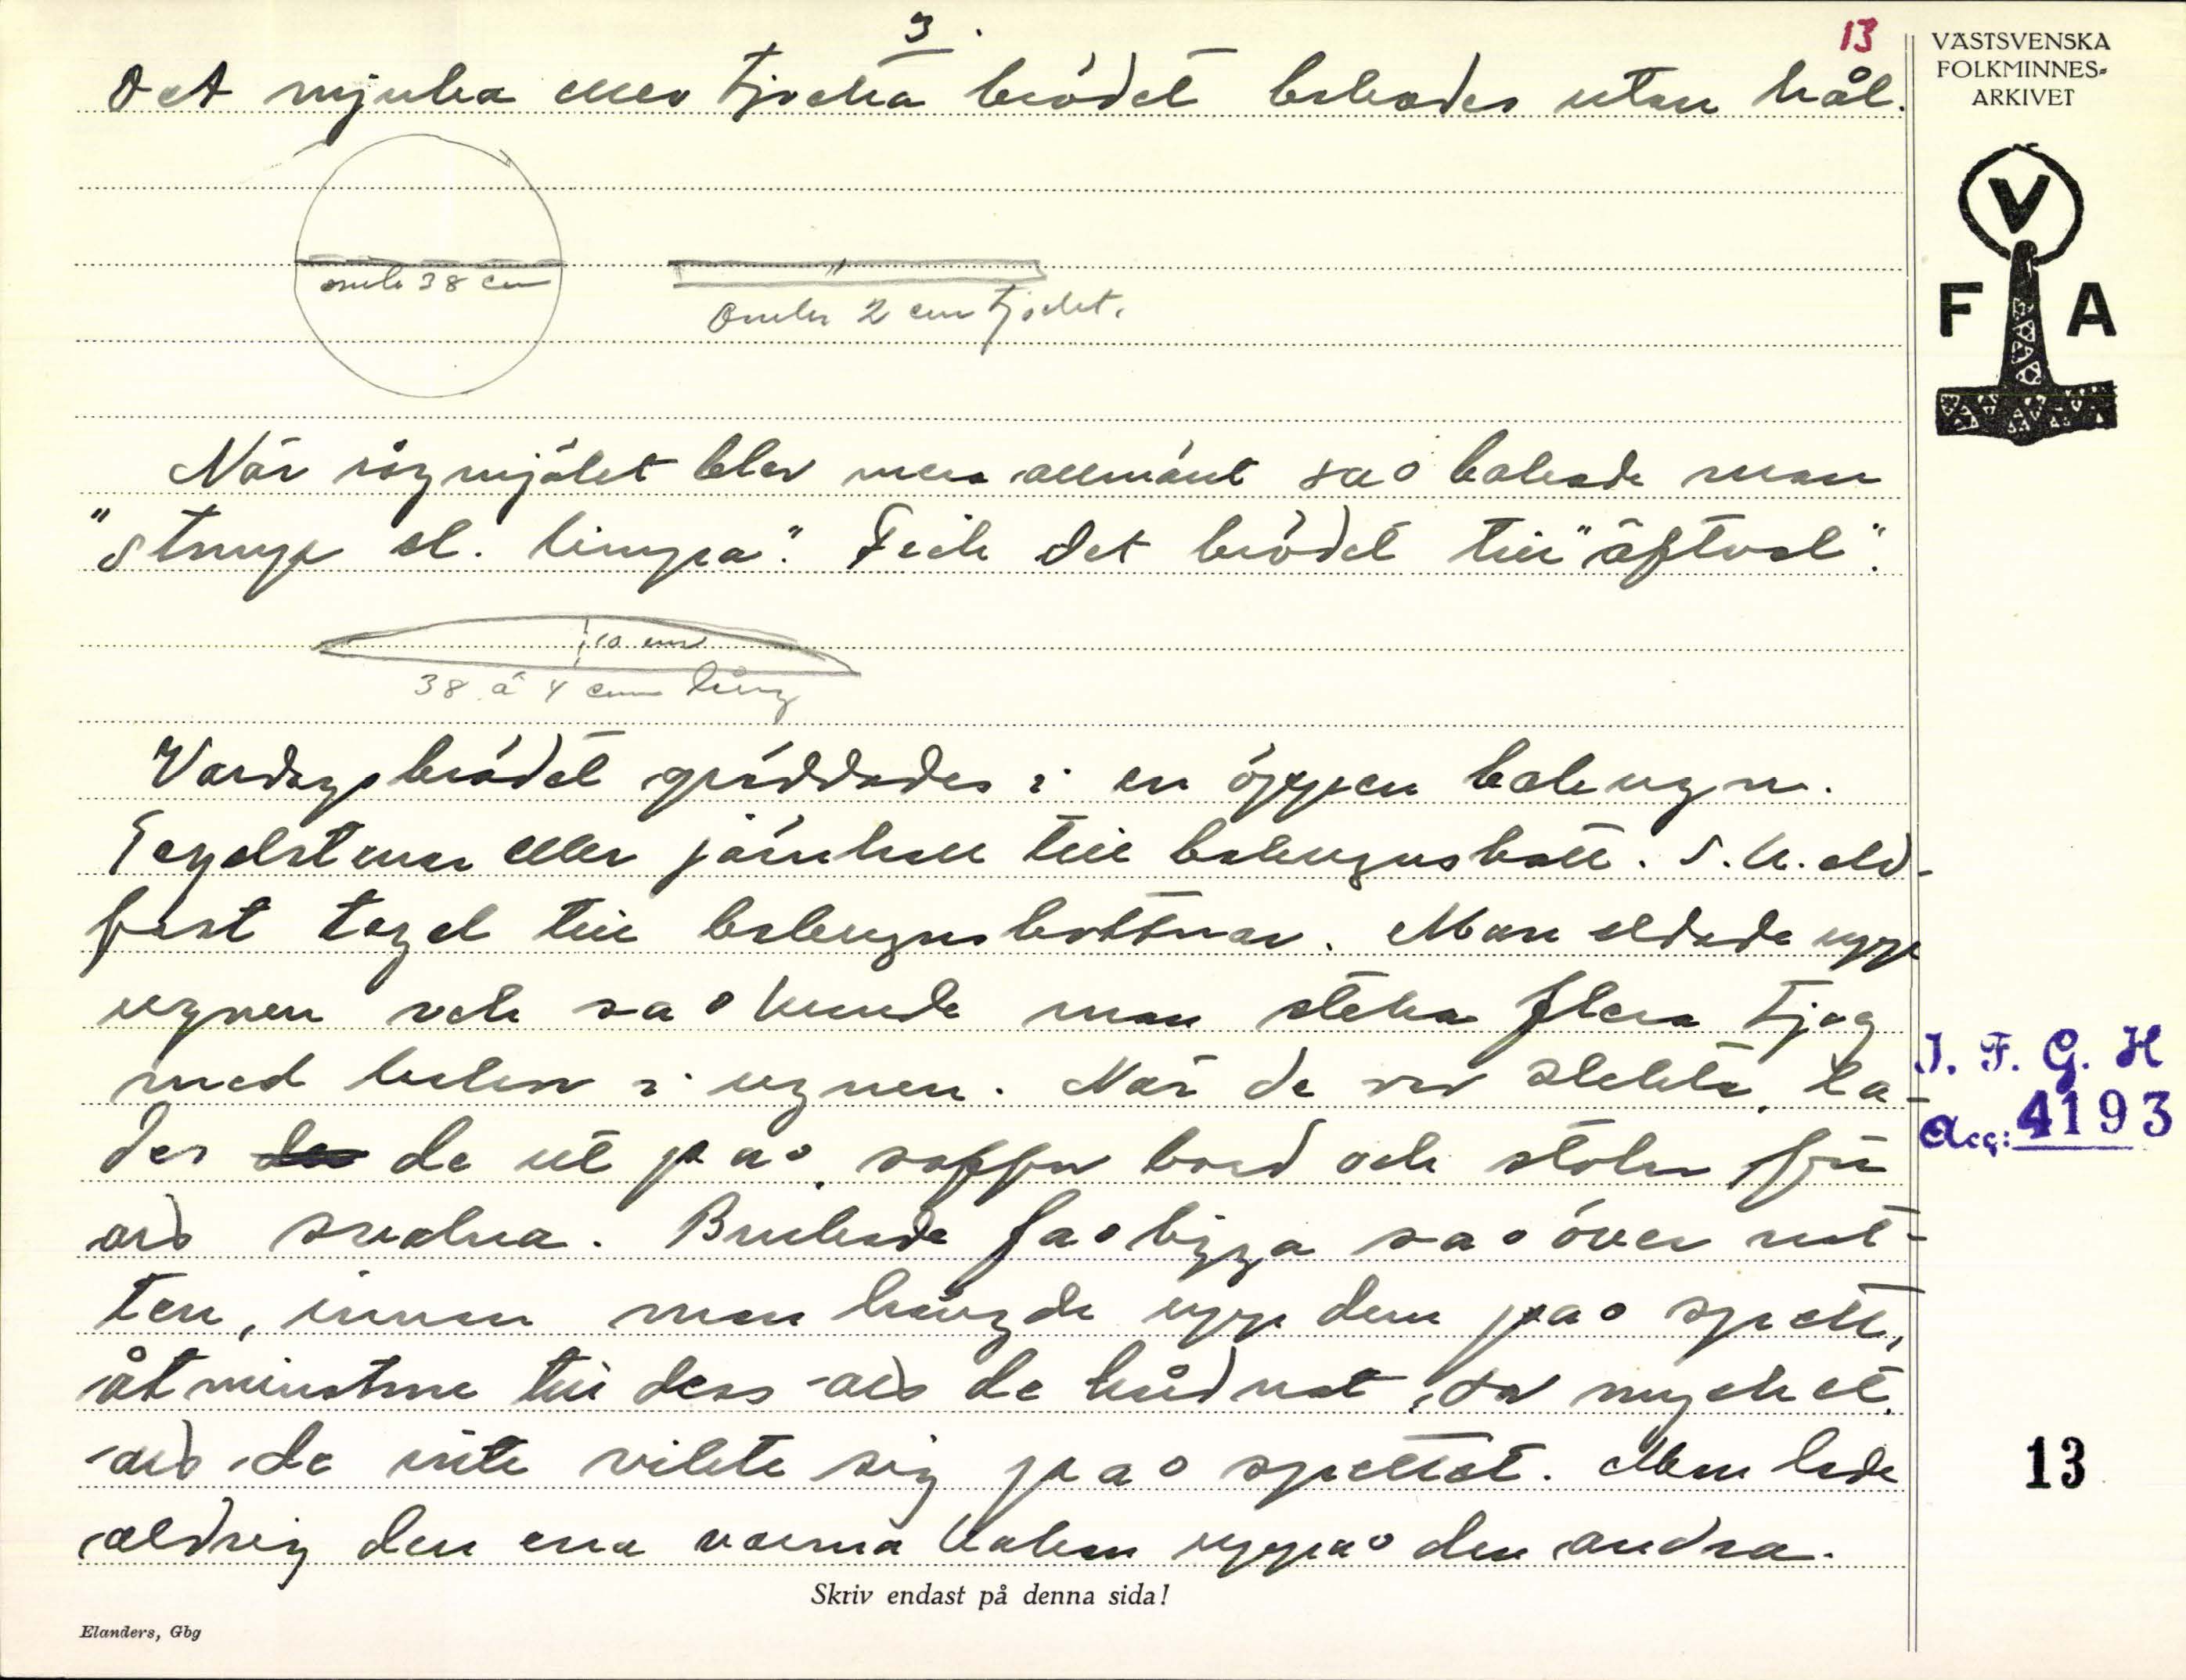 3.
13
Det mjuka eller tjocka brödet bakades utan hål.
omkr 38 cm
Omkr 2 cm tjockt.
När rågmjölet blev mera allmänt så bakade man
"stump el. limpa". Fick det brödet till "äftval".
10 cm
38 à 4 cm lång
Vardagsbrödet gräddades i en öppen bakugn.
Tegelstenar eller järnhäll till bakugnshäll. S.k. eld-
fast tegel till bakugnsbottnar. Man eldade upp
ugnen och så kunde man steka flera tjog
med kakor i ugnen. När de var stekta, la-
des de ut på soffor bord och stolar för
att svalna. Brukade få ligga så över nat-
ten, innan man hängde upp dem på spett,
åtminstone till dess att de hårdnat så mycket
att de inte vikte sig på spettet. Man lade
aldrig den ena varma kakan uppå den andra.
Skriv endast på denna sida!
Elanders, Gbg
VÄSTSVENSKA
FOLKMINNES-
ARKIVET
V
F A
I. F. G. H
Acc: 4193
13